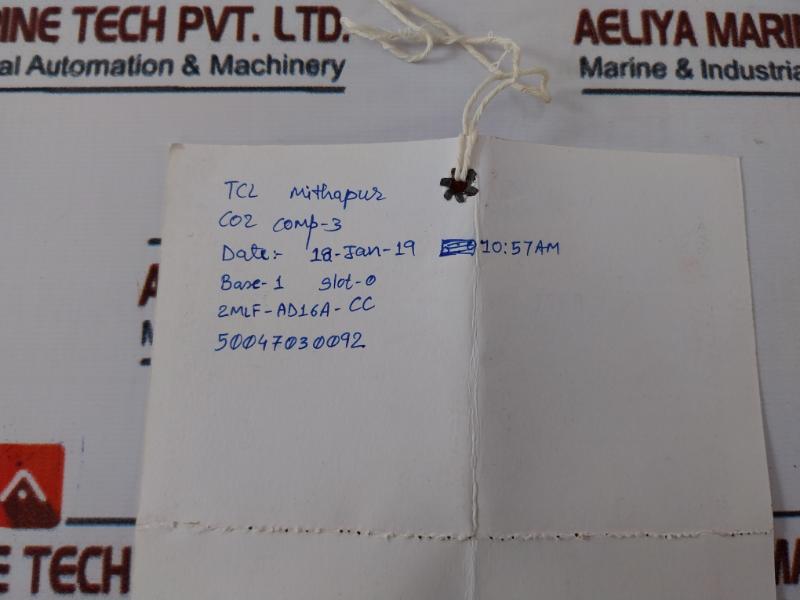 RINE TECH PVT. LTD.
al Automation & Machinery
AELIYA MARIN
Marine & Industria
TCL Mithapur
CO2 Comp-3
Date:- 18-Jan-19 10:57AM
Base-1 Slot-0
2MLF-AD16A-CC
50047030092
A
M
E TECH